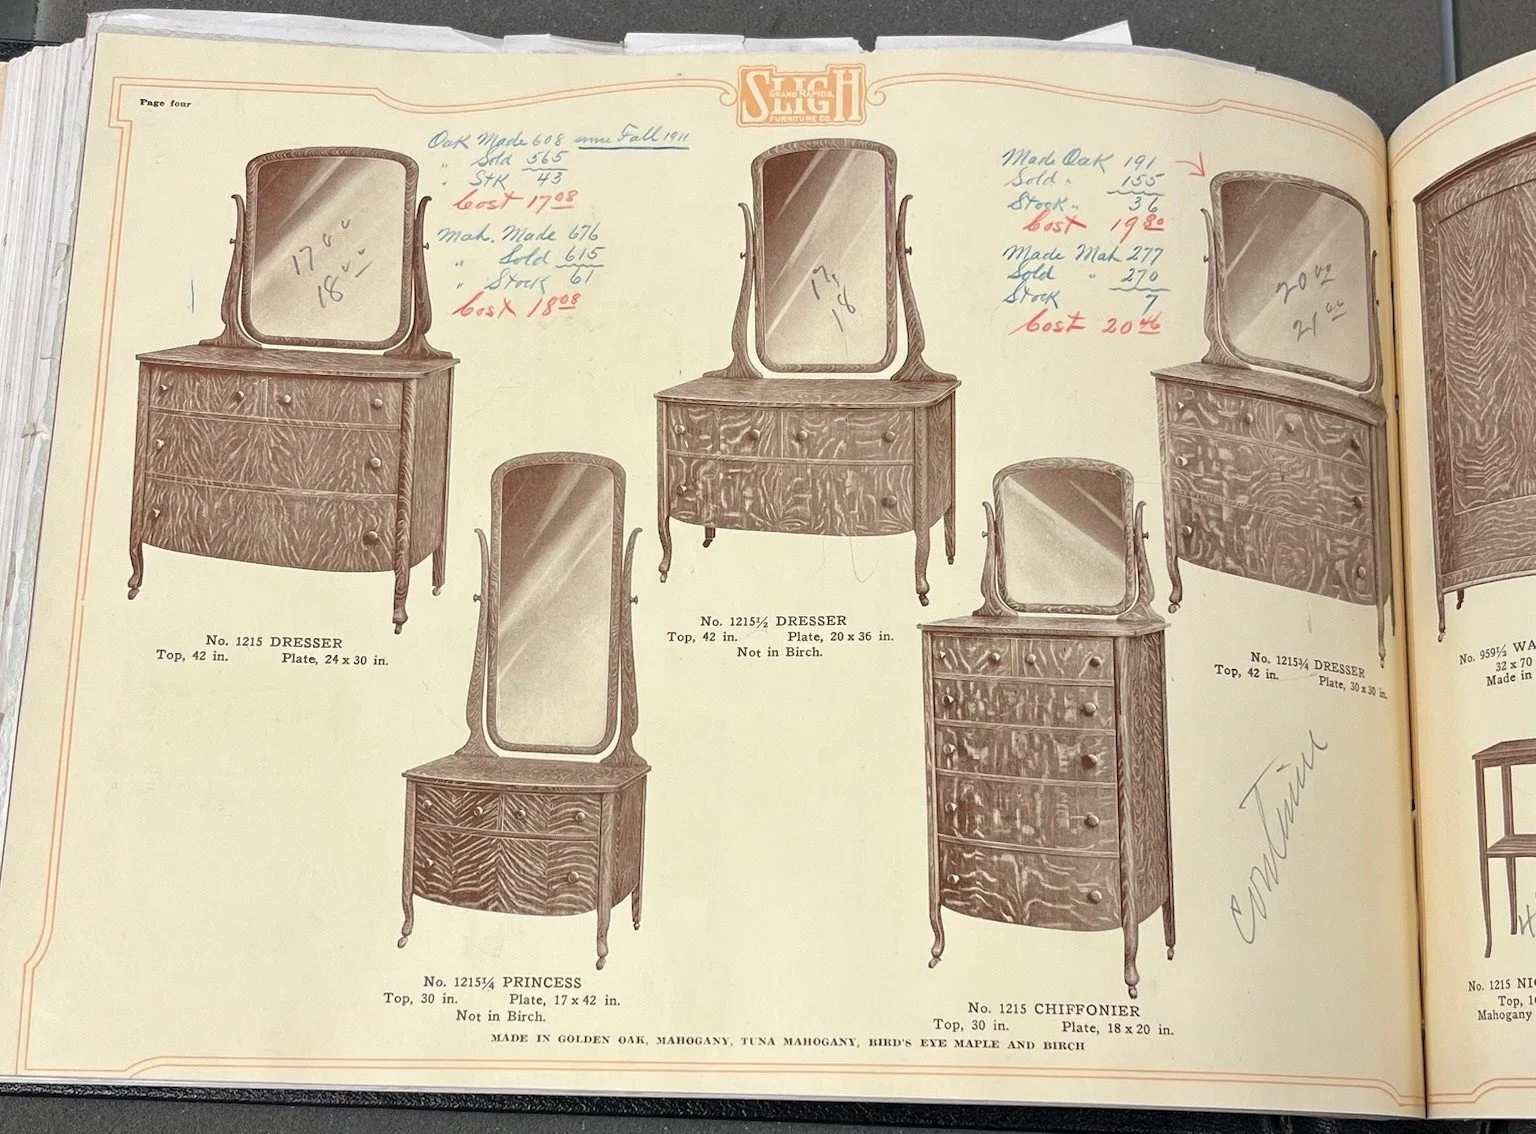 Page four
SLIGH
GRAND RAPIDS.
FURNITURE CO.
Oak Made 608 since Fall 1911
" Sold 565
" Stk 43
Cost 17 08
Mah. Made 676
" Sold 615
" Stock 61
Cost 18 08
17 00
18 00
17,
18
Made Oak 191
Sold " 155
Stock " 36
Cost 19 80
Made Mah 277
Sold " 270
Stock 7
Cost 20 46
20 00
21 00
No. 1215 DRESSER
Top, 42 in. Plate, 24 x 30 in.
No. 1215½ DRESSER
Top, 42 in. Plate, 20 x 36 in.
Not in Birch.
No. 1215¾ DRESSER
Top, 42 in. Plate, 30 x 30 in.
continue
No. 1215¼ PRINCESS
Top, 30 in. Plate, 17 x 42 in.
Not in Birch.
No. 1215 CHIFFONIER
Top, 30 in. Plate, 18 x 20 in.
MADE IN GOLDEN OAK, MAHOGANY, TUNA MAHOGANY, BIRD'S EYE MAPLE AND BIRCH
No. 959½ WA
32 x 70
Made in
4
No. 1215 NI
Top, 1
Mahogany